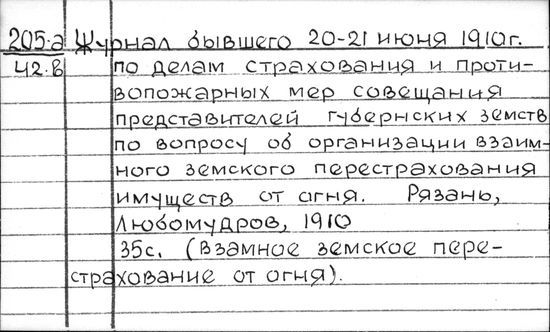 205-а Журнал бывшего 20-21 июня 1910г.
42.В по делам страхования и проти-
вопожарных мер совещания
представителей губернских земств
по вопросу об организации взаим-
ного земского перестрахования
имуществ от огня. Рязань,
Любомудров, 1910
35с. (взамное земское пере-
страхование от огня).